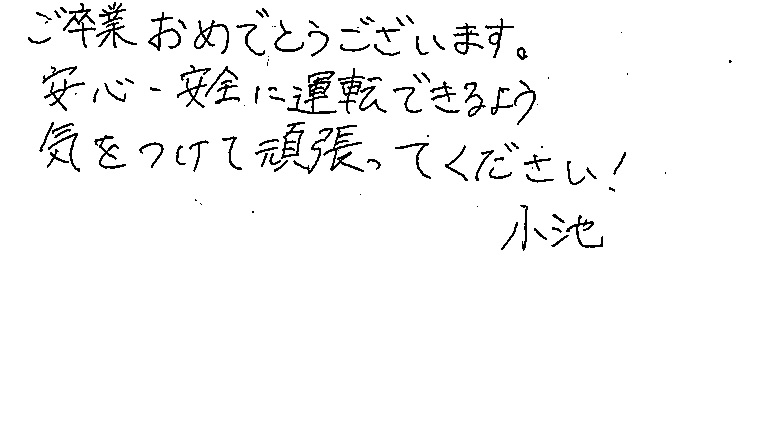 ご卒業おめでとうございます。
安心・安全に運転できるよう
気をつけて頑張ってください!
小池